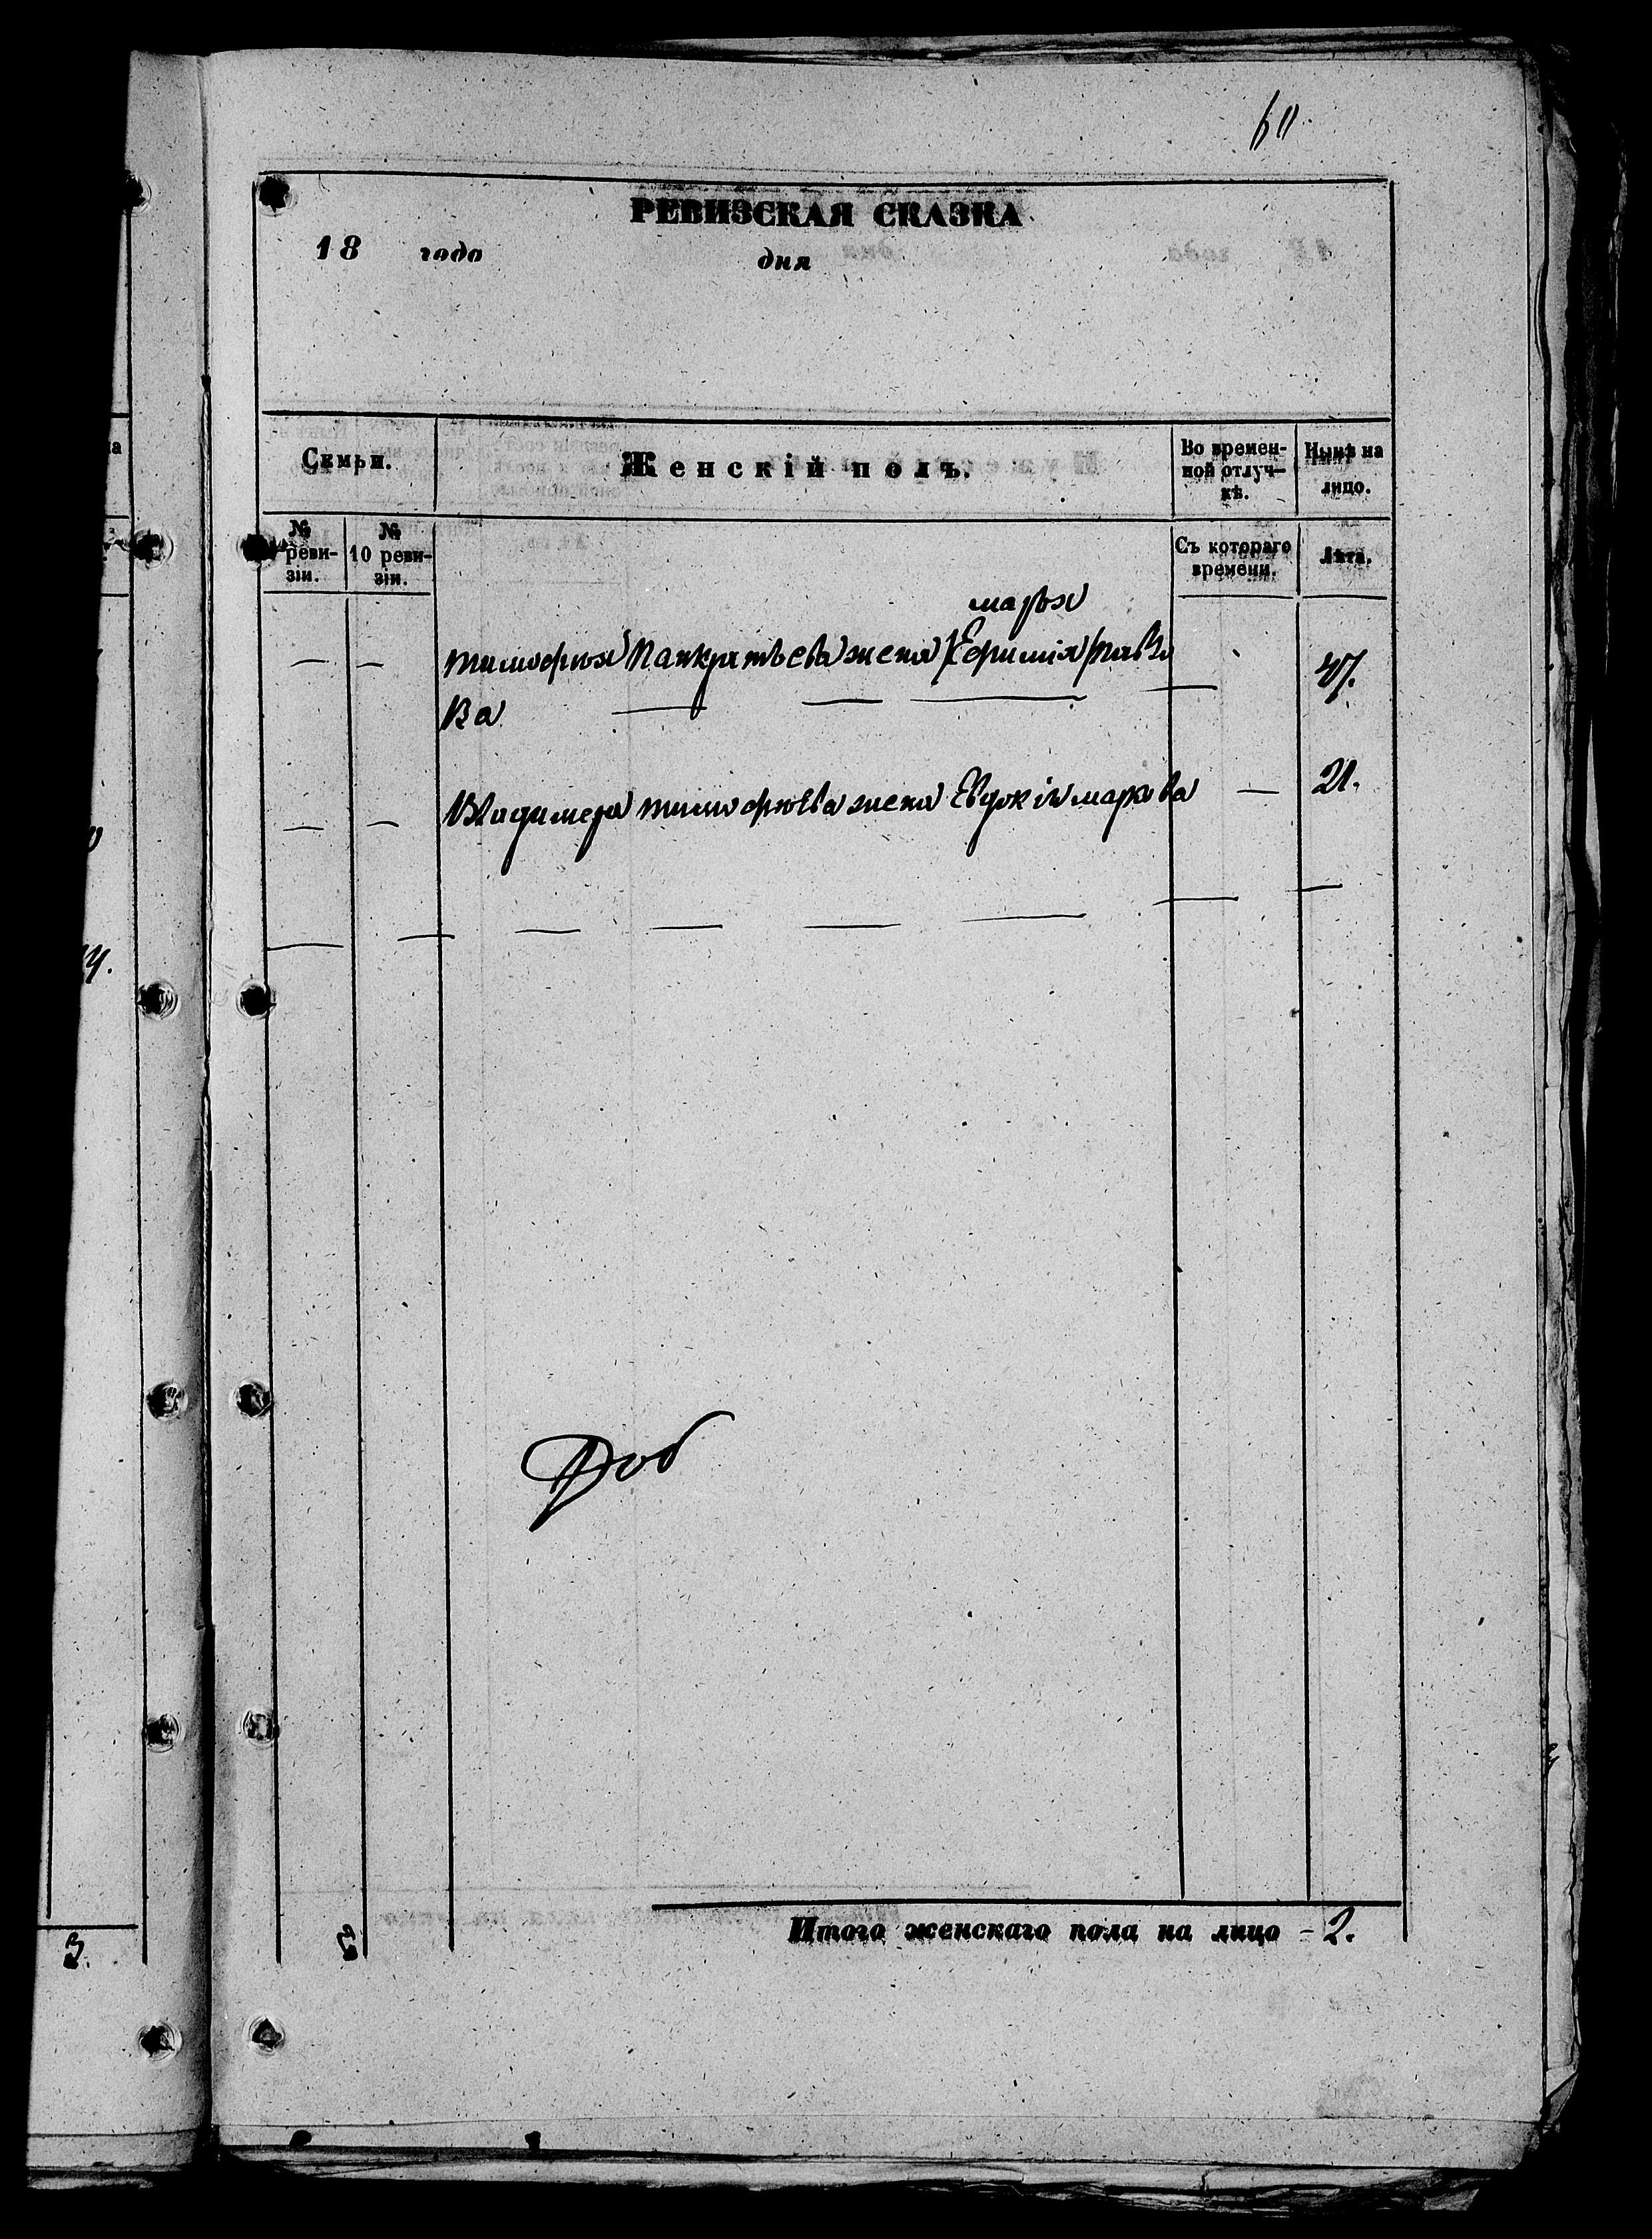 60
РЕВИЗСКАЯ СКАЗКА
18 года дня
Семьи.
Женскій полъ.
Во времен-
ной отлуч-
кѣ.
Нынѣ на
лицо.
№
реви-
зіи.
№
10 реви-
зіи.
Съ котораго
времени.
Лѣта.
марья
тимофея Панкратьева жена Ефимія
ва
47.
Владимера тимофеева жена Евдокія маркова — 21.
Итого женскаго пола на лицо – 2.
3.